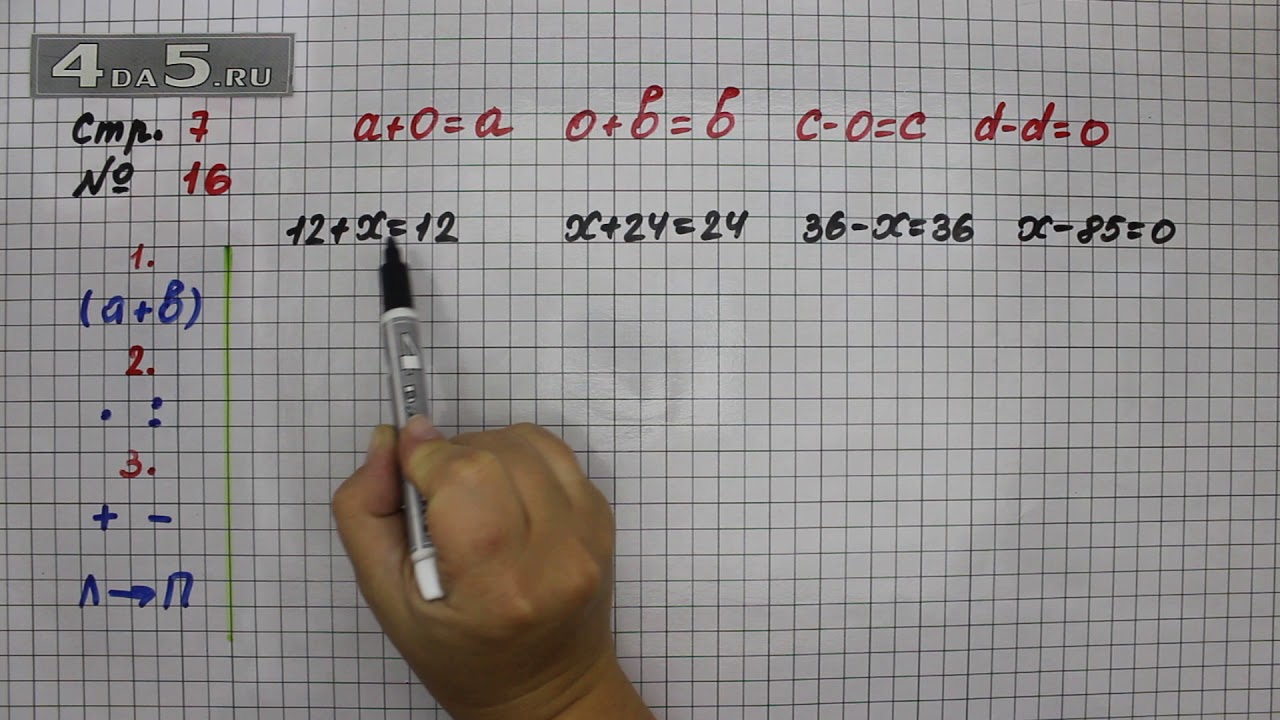 4DA5.RU
Стр. 7 a+0=a 0+b=b c-0=c d-d=0
№ 16
12+x=12 x+24=24 36-x=36 x-85=0
1.
(a+b)
2.
· :
3.
+ -
Л→П